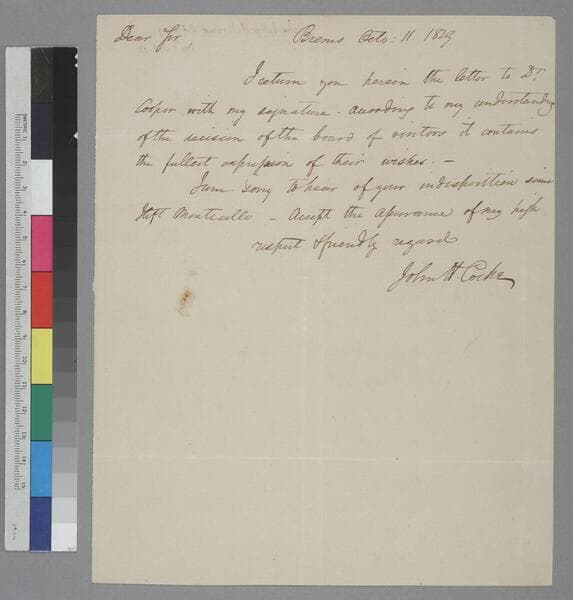 Dear Sir Bremo Octo: 11. 1819
I return you herein the letter to Dr.
Cooper with my signature. According to my understanding
of the decision of the board of visitors it contains
the fullest expression of their wishes. —
I am sorry to hear of your indisposition since
I left Monticello — Accept the assurance of my high
respect & friendly regard
John H. Cocke